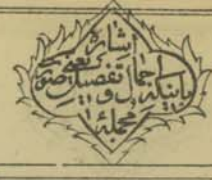 اشاره
باینکه جمال و تفصیل یعنی صور
مجملهٔ